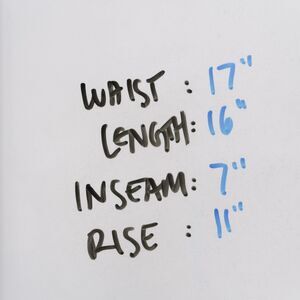 WAIST : 17"
LENGTH: 16"
INSEAM: 7"
RISE : 11"